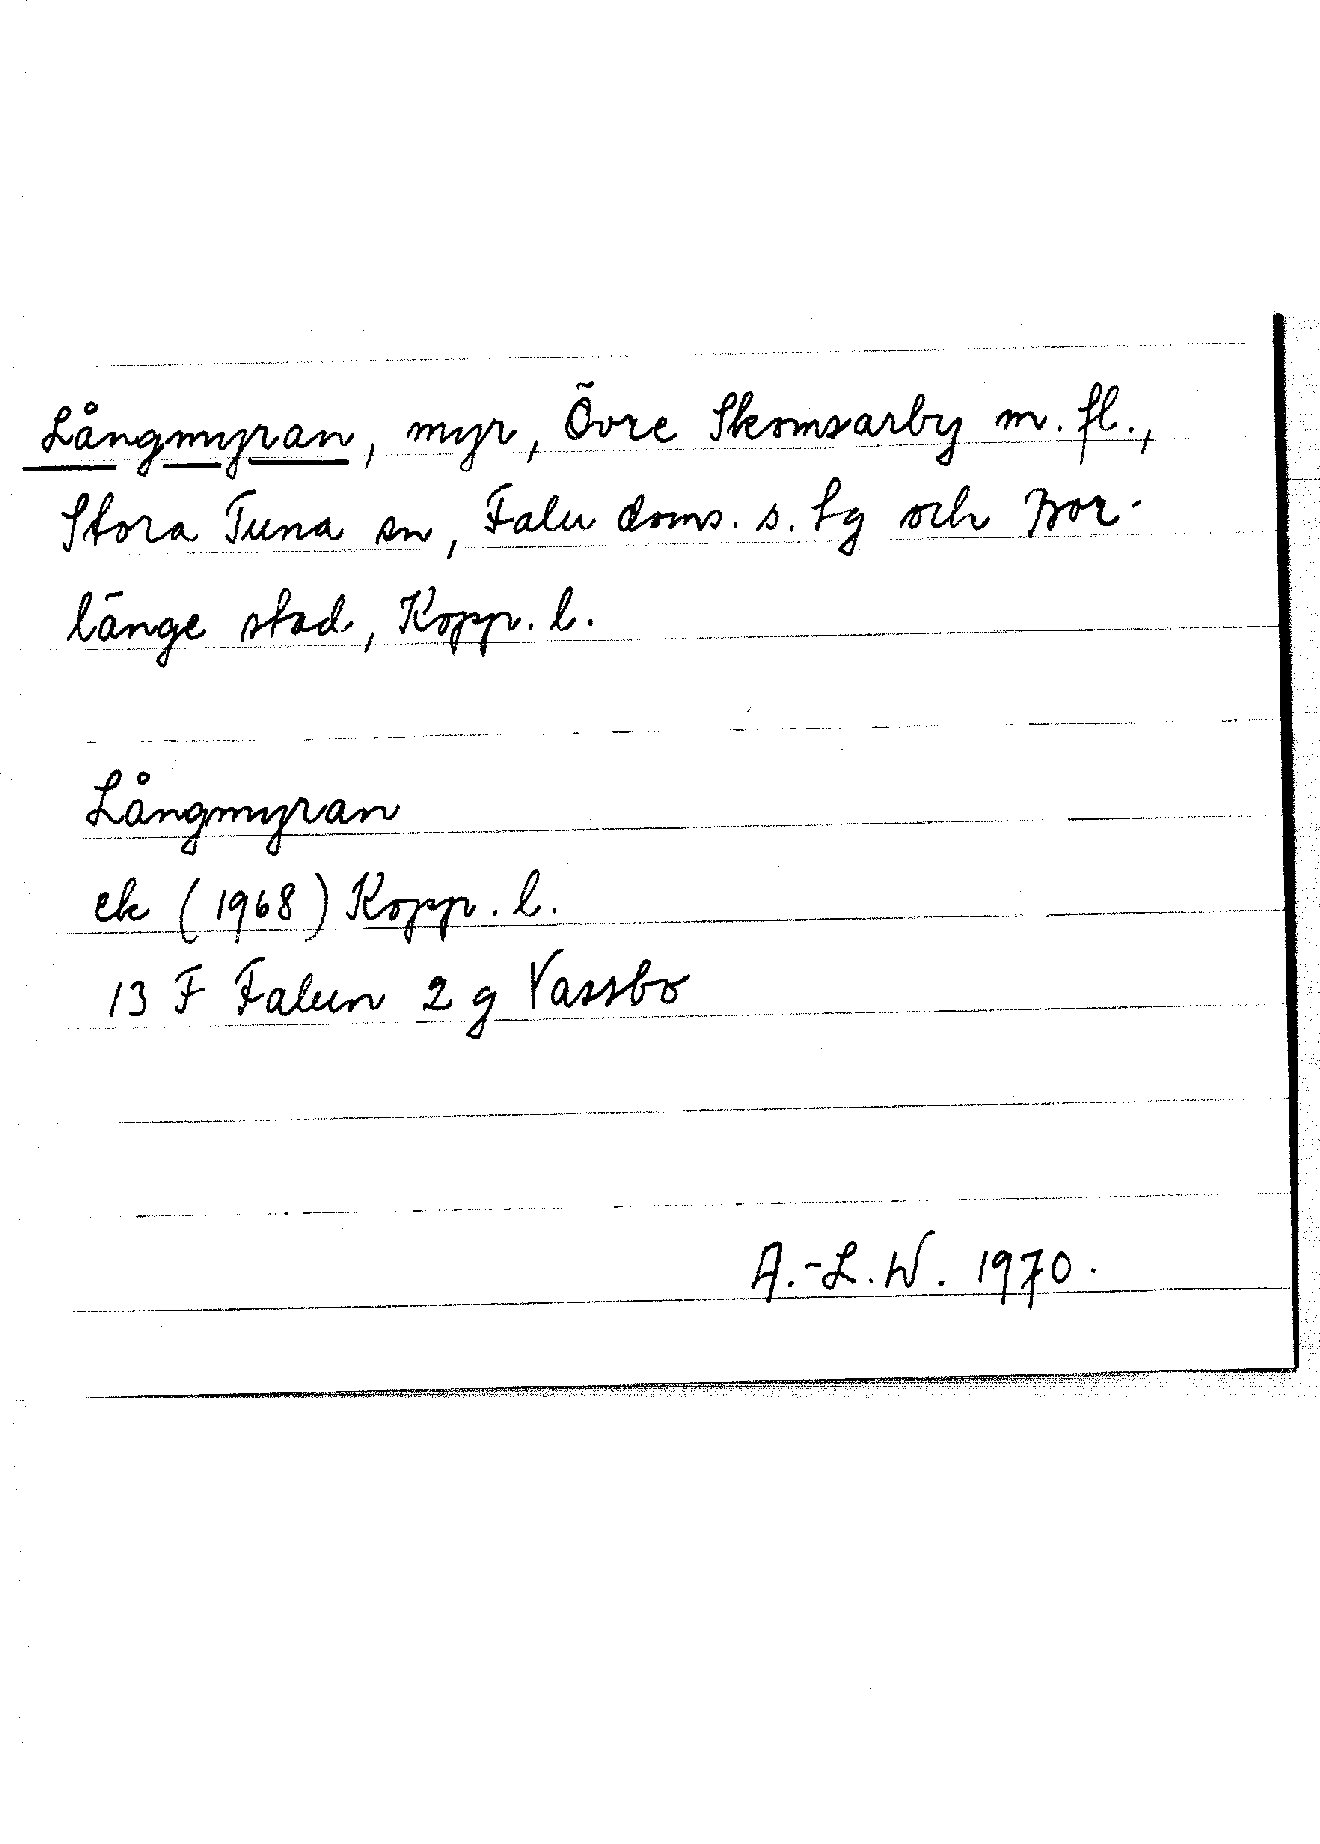 Långmyran, myr, Övre Skomsarby m. fl.,
Stora Tuna sn, Falu doms. s. tg och Bor-
länge stad, Kopp. l.
Långmyran
ek (1968) Kopp. l.
13 F Falun 2 g Vassbo
A.-L. W. 1970.